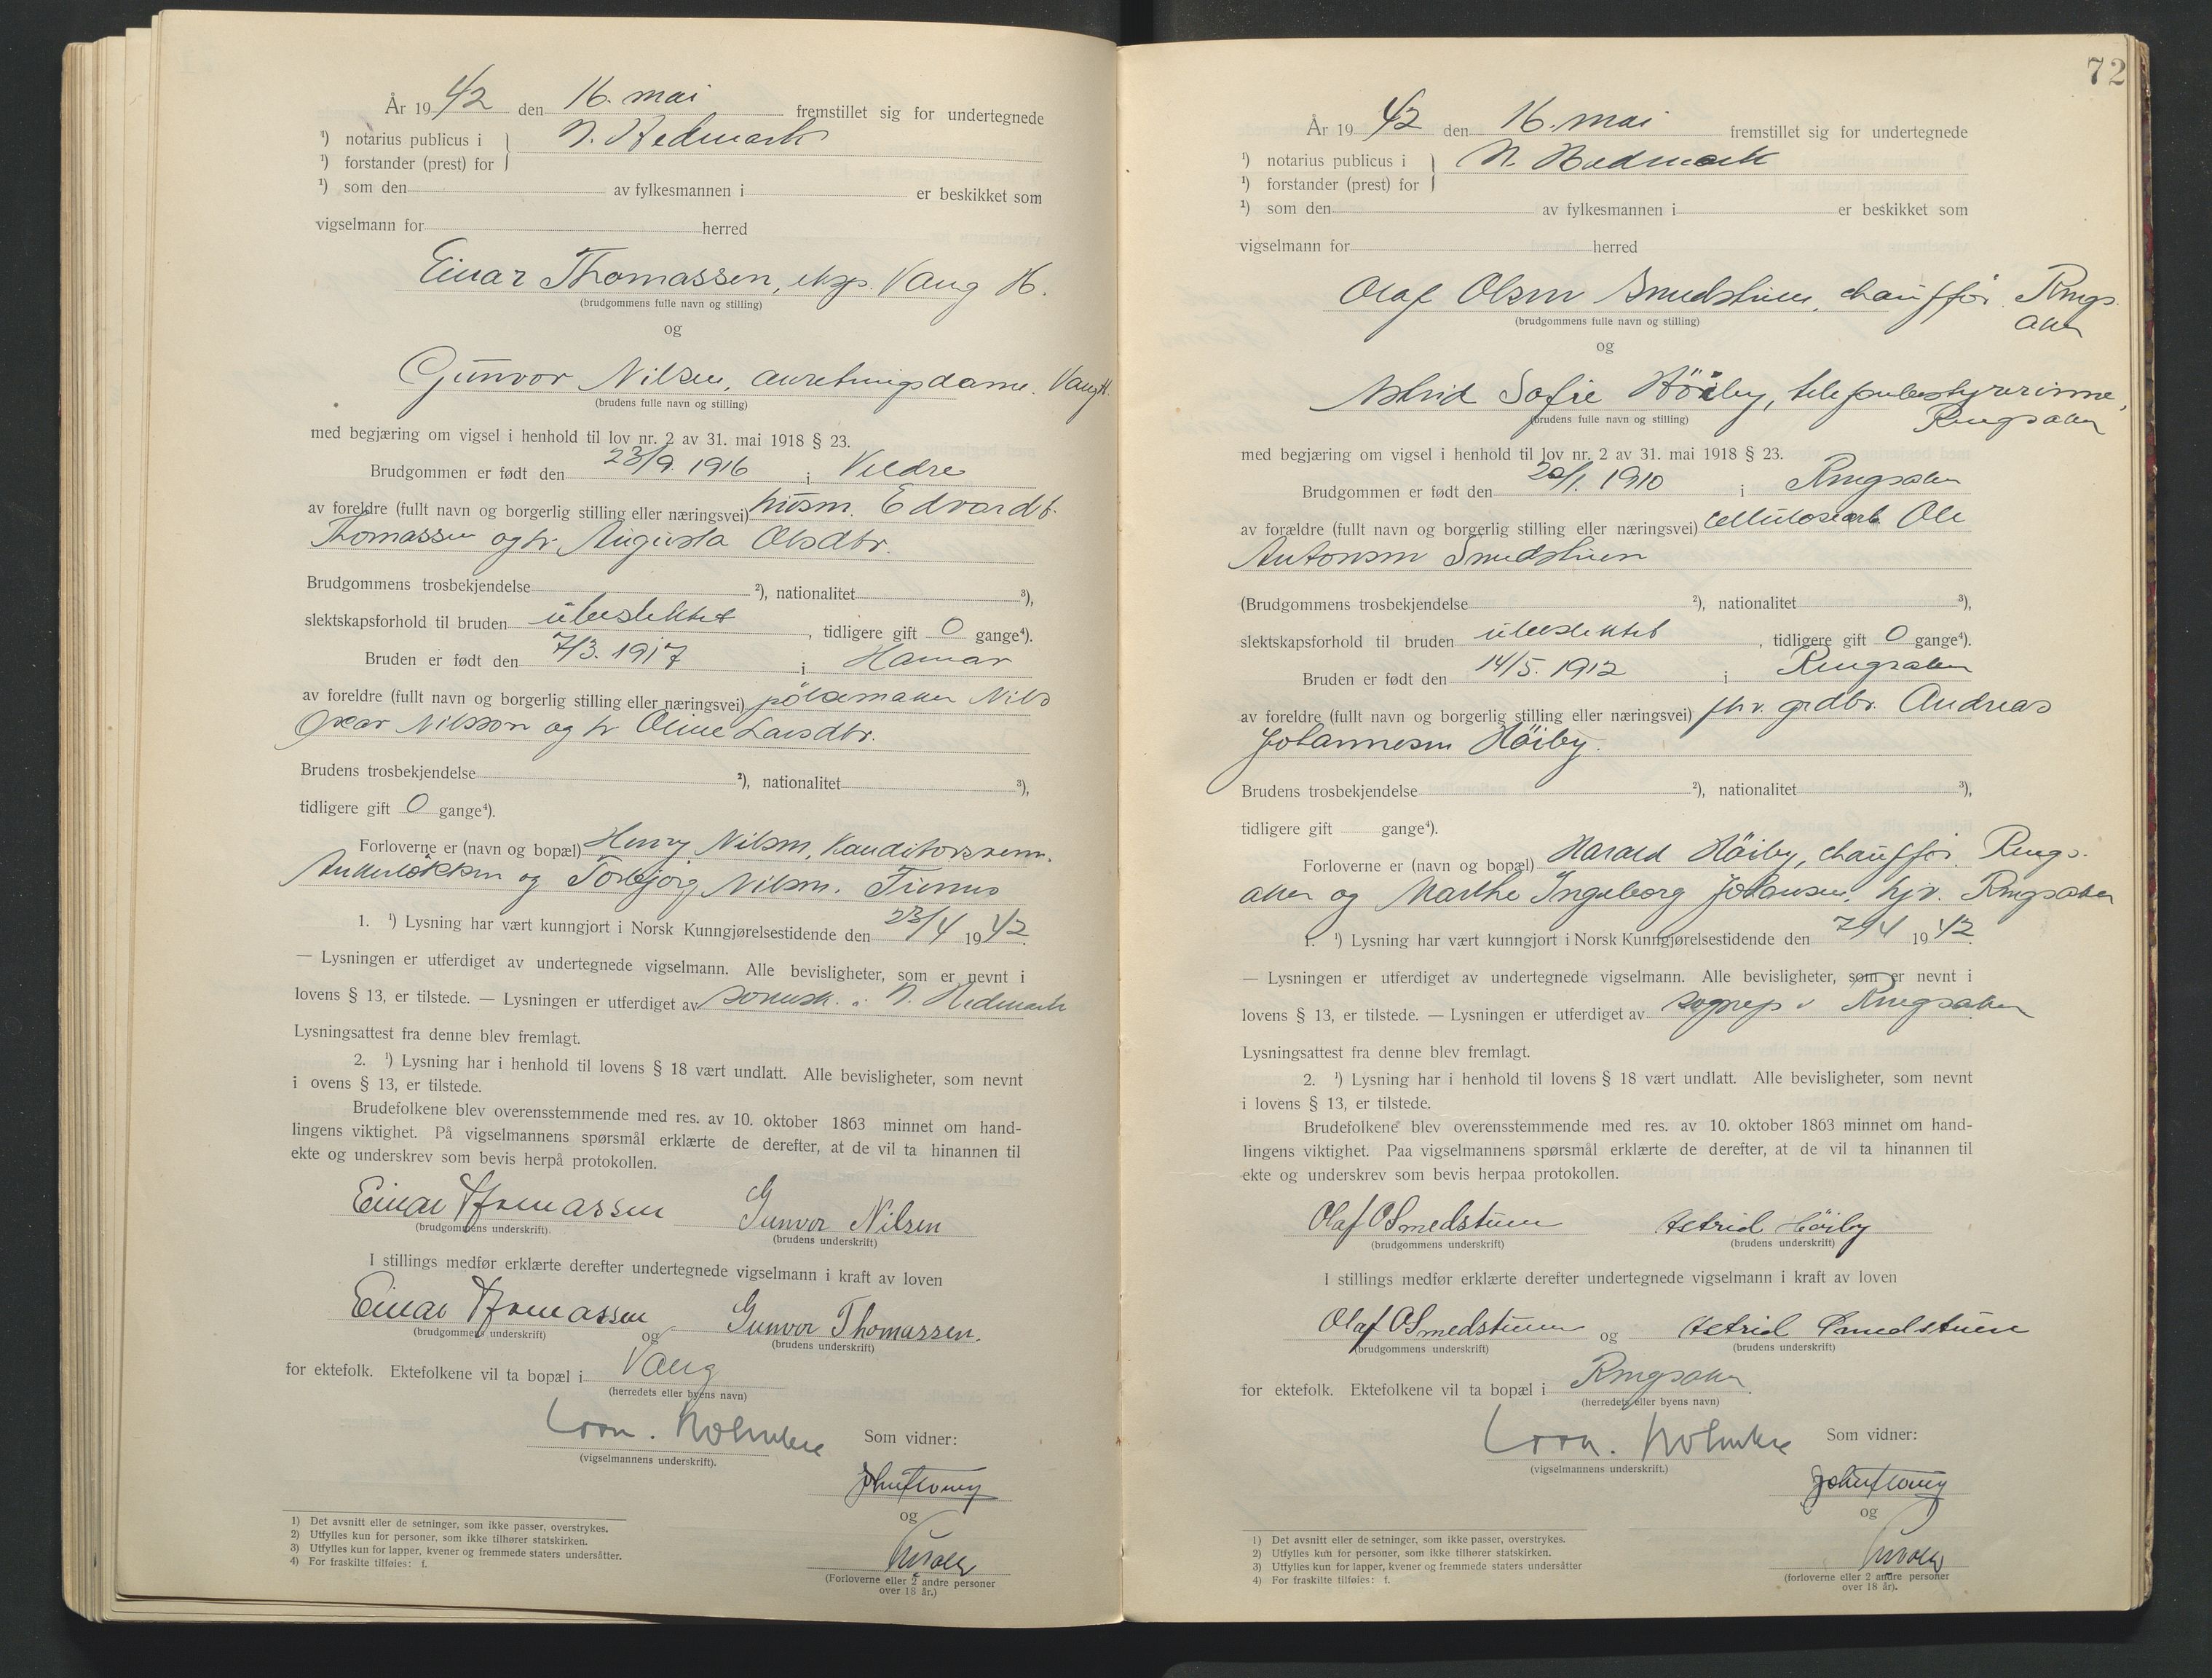 År 1942 den 16. mai fremstillet sig for undertegnede
¹) notarius publicus i } N. Hedmark
¹) forstander (prest) for
¹) som den av fylkesmannen i er beskikket som
vigselmann for herred
Einar Thomassen, eksp. Vang H.
(brudgommens fulle navn og stilling)
og
Gunvor Nilsen, anretningsdame. Vang H.
(brudens fulle navn og stilling)
med begjæring om vigsel i henhold til lov nr. 2 av 31. mai 1918 § 23.
Brudgommen er født den 23/9. 1916 i Veldre
av foreldre (fullt navn og borgerlig stilling eller næringsvei) husm. Edvardt
Thomassen og h. Augusta Olsdtr.
Brudgommens trosbekjendelse ²), nationalitet ³),
slektskapsforhold til bruden ubeslektet, tidligere gift 0 gange⁴).
Bruden er født den 7/3. 1917 i Hamar
av foreldre (fullt navn og borgerlig stilling eller næringsvei) pølsemaker Nils
Oskar Nilsson og h. Oline Larsdtr.
Brudens trosbekjendelse ²), nationalitet ³),
tidligere gift 0 gange⁴).
Forloverne er (navn og bopæl) Henry Nilsen, kanditorsvenn.
Ankerløkken og Torbjørg Nilsen. Furnes
1. ¹) Lysning har vært kunngjort i Norsk Kunngjørelsestidende den 23/4 1942
— Lysningen er utferdiget av undertegnede vigselmann. Alle bevisligheter, som er nevnt i
lovens § 13, er tilstede. — Lysningen er utferdiget av sorensk. i N. Hedmark
Lysningsattest fra denne blev fremlagt.
2. ¹) Lysning har i henhold til lovens § 18 vært undlatt. Alle bevisligheter, som nevnt
i ovens § 13, er tilstede.
Brudefolkene blev overensstemmende med res. av 10. oktober 1863 minnet om hand-
lingens viktighet. På vigselmannens spørsmål erklærte de derefter, at de vil ta hinannen til
ekte og underskrev som bevis herpå protokollen.
Einar Thomassen Gunvor Nilsen
(brudgommens underskrift). (brudens underskrift)
I stillings medfør erklærte derefter undertegnede vigselmann i kraft av loven
Einar Thomassen og Gunvor Thomassen.
(brudgommens underskrift) (brudens underskrift)
for ektefolk. Ektefolkene vil ta bopæl i Vang
(herredets eller byens navn)
Som vidner:
(vigselmannens underskrift).
og
(Forloverne eller 2 andre personer
over 18 år.)
1) Det avsnitt eller de setninger, som ikke passer, overstrykes.
2) Utfylles kun for personer, som ikke tilhører statskirken.
3) Utfylles kun for lapper, kvener og fremmede staters undersåtter.
4) For fraskilte tilføies: f.
72
År 1942 den 16. mai fremstillet sig for undertegnede
¹) notarius publicus i } N. Hedmark
¹) forstander (prest) for
¹) som den av fylkesmannen i er beskikket som
vigselmann for herred
Olaf Olsen Smedstuen, chauffør. Rings-
aker
(brudgommens fulle navn og stilling)
og
Astrid Sofie Høiby, telefonbestyrerinne,
Ringsaker
(brudens fulle navn og stilling)
med begjæring om vigsel i henhold til lov nr. 2 av 31. mai 1918 § 23.
Brudgommen er født den 20/1. 1910 i Ringsaker
av forældre (fullt navn og borgerlig stilling eller næringsvei) cellulosearb. Ole
Antonsen Smedstuen
(Brudgommens trosbekjendelse ²), nationalitet ³),
slektskapsforhold til bruden ubeslektet, tidligere gift 0 gange⁴).
Bruden er født den 14/5. 1912 i Ringsaker
av foreldre (fullt navn og borgerlig stilling eller næringsvei) fhv. grdbr. Andreas
Johannesen Høiby.
Brudens trosbekjendelse ²), nationalitet ³),
tidligere gift gange⁴).
Forloverne er (navn og bopæl) Harald Høiby, chauffør. Rings-
aker og Marthe Ingeborg Johansen, hjv. Ringsaker
1. ¹) Lysning har vært kunngjort i Norsk Kunngjørelsestidende den 1942
— Lysningen er utferdiget av undertegnede vigselmann. Alle bevisligheter, som er nevnt i
lovens § 13, er tilstede. — Lysningen er utferdiget av sognepr i Ringsaker
Lysningsattest fra denne blev fremlagt.
2. ¹) Lysning har i henhold til lovens § 18 vært undlatt. Alle bevisligheter, som nevnt
i lovens § 13, er tilstede.
Brudefolkene blev overensstemmende med res. av 10. oktober 1863 minnet om hand-
lingens viktighet. Paa vigselmannens spørsmål erklærte de derefter, at de vil ta hinannen til
ekte og underskrev som bevis herpaa protokollen.
Olaf O Smedstuen Astrid Høiby
(brudgommens underskrift) (brudens underskrift)
I stillings medfør erklærte derefter undertegnede vigselmann i kraft av loven
Olaf O Smedstuen og Astrid Smedstuen
(brudgommens underskrift) (brudens underskrift)
for ektefolk. Ektefolkene vil ta bopæl i Ringsaker
(herredets eller byens navn)
Som vidner:
(vigselmannens underskrift.)
og
(forloverne eller 2 andre personer
over 18 år).
1) Det avsnitt eller de setninger, som ikke passer, overstrykes.
2) Utfylles kun for personer, som ikke tilhører statskirken.
3) Utfylles kun for lapper, kvener og fremmede staters undersåtter
4) For fraskilte tilføies: f.